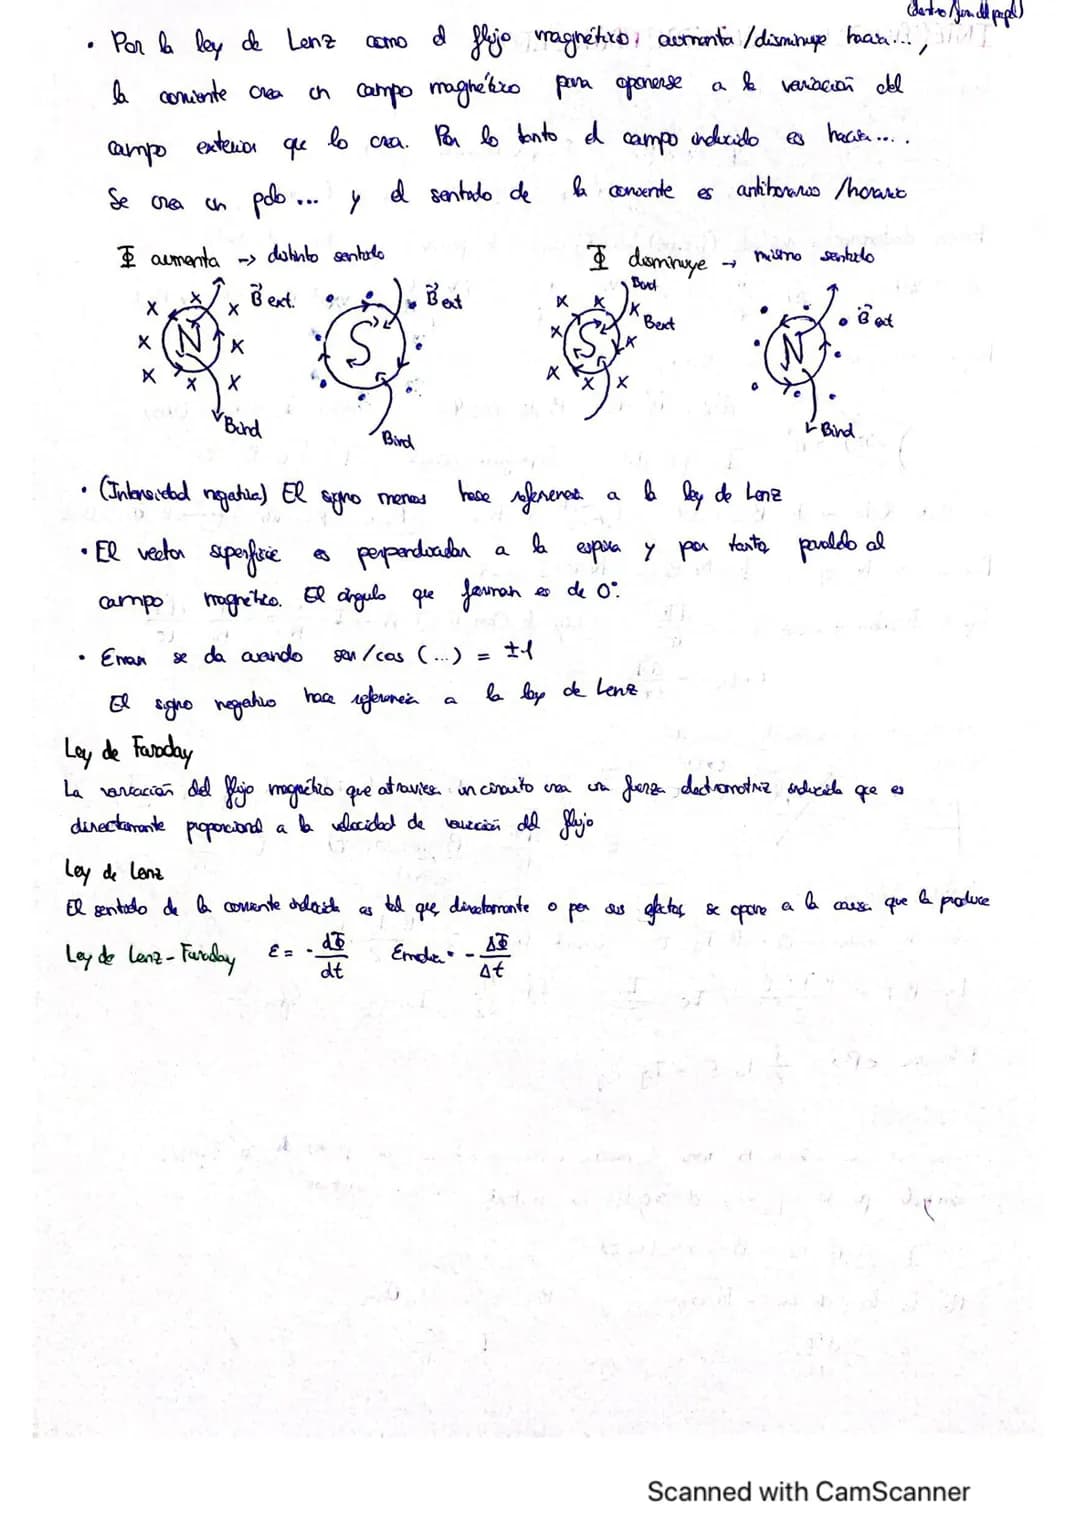 (dentro/fuera del papel)
• Por la ley de Lenz como el flujo magnético, aumenta/disminuye hacia...,
la corriente crea un campo magnético para oponerse a la variación del
campo exterior que lo crea. Por lo tanto el campo inducido es hacia....
Se crea un polo ... y el sentido de la corriente es antihorario/horario
Φ aumenta -> distinto sentido
Φ disminuye → mismo sentido
x x x B ext. x N x x x x Bind
B ext S Bind
Bind x x x Bext x S x x x x
B ext N Bind
• (Intensidad negativa) El signo menos hace referencia a la ley de Lenz
• El vector superficie es perpendicular a la espira y por tanto paralelo al
campo magnético. El ángulo que forman es de 0°.
• Emax se da cuando sen/cos (...) = ±1
El signo negativo hace referencia a la ley de Lenz
Ley de Faraday
La variación del flujo magnético que atraviesa un circuito crea una fuerza electromotriz inducida que es
directamente proporcional a la velocidad de variación del flujo
Ley de Lenz
El sentido de la corriente inducida es tal que, directamente o por sus efectos se opone a la causa que la produce
Ley de Lenz-Faraday ε = - dΦ/dt Emedia = - ΔΦ/Δt
Scanned with CamScanner